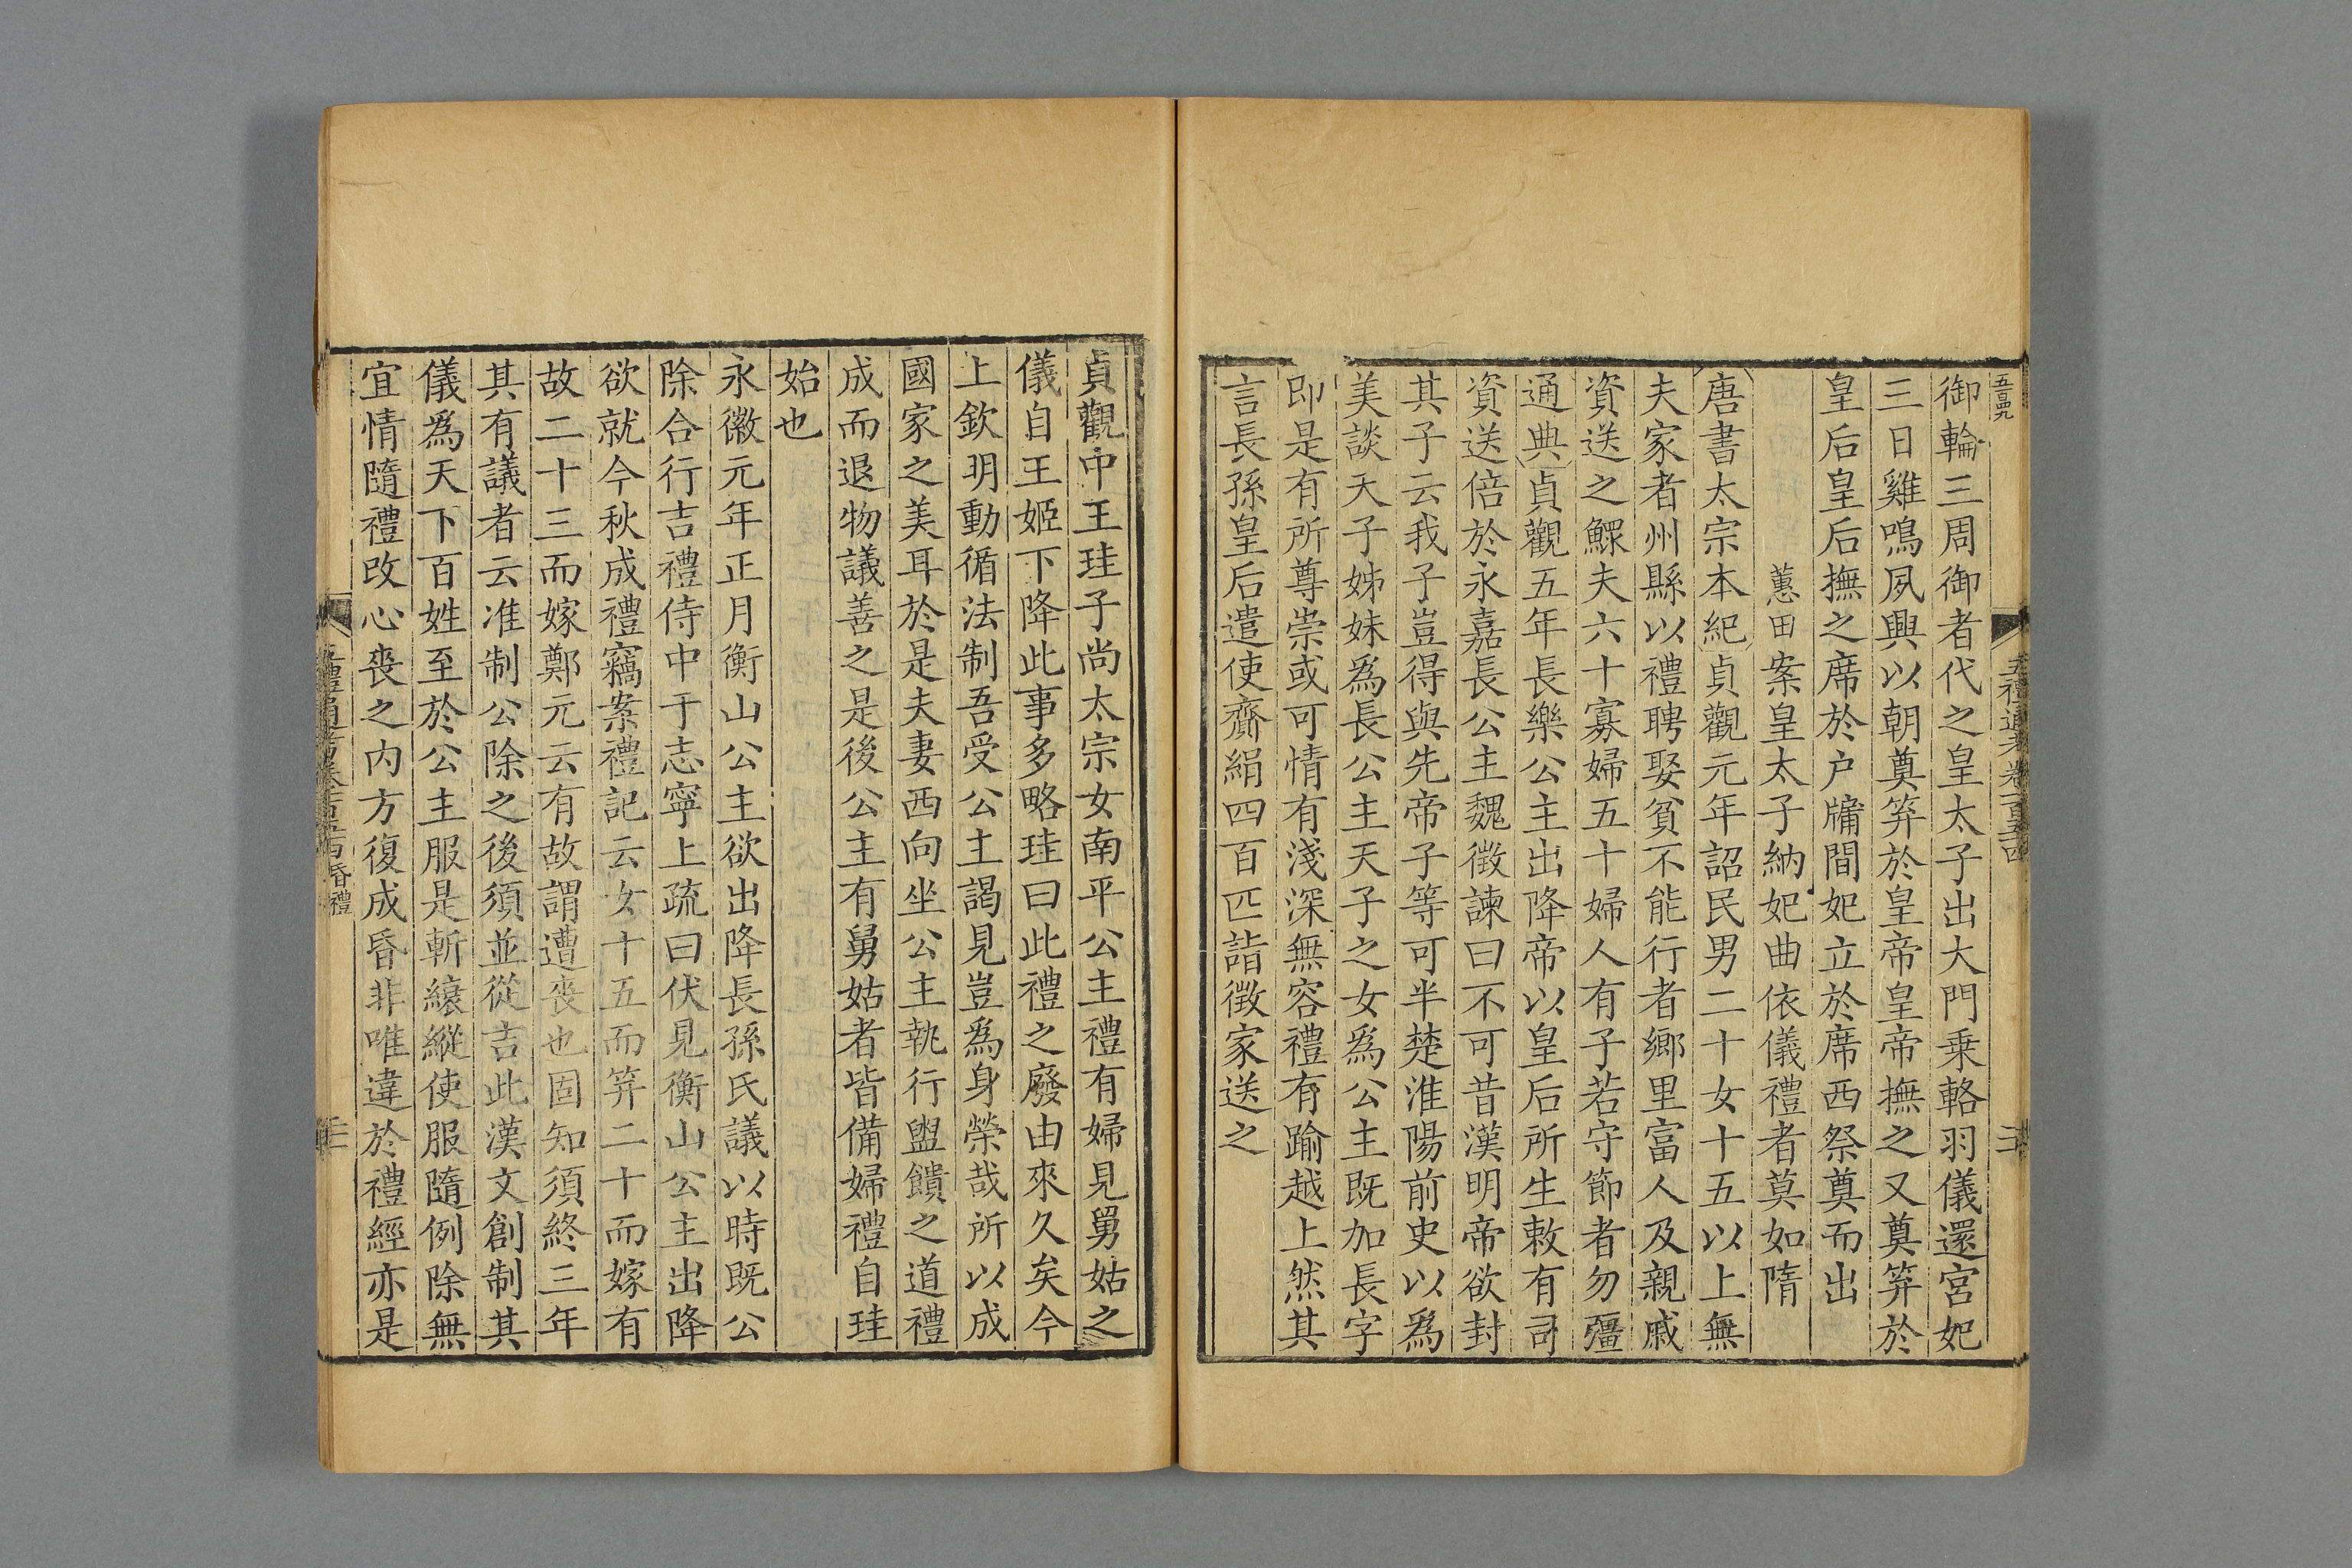 御輪三周御者代之皇太子出大門乗輅羽儀還宮妃
三日雞鳴夙興以朝奠笲於皇帝皇帝撫之又奠笲於
皇后皇后撫之席於户牖間妃立於席西祭奠而出
蕙田案皇太子納妃曲依儀禮者莫如隋
唐書太宗本紀貞觀元年詔民男二十女十五以上無
夫家者州縣以禮聘娶貧不能行者鄉里富人及親戚
資送之鰥夫六十寡婦五十婦人有子若守節者勿彊
通典貞觀五年長樂公主出降帝以皇后所生敕有司
資送倍於永嘉長公主魏徵諫曰不可昔漢明帝欲封
其子云我子豈得與先帝子等可半楚淮陽前史以爲
美談天子姊妹爲長公主天子之女爲公主既加長字
即是有所尊崇或可情有淺深無容禮有踰越上然其
言長孫皇后遣使齎絹四百匹詣徵家送之
貞觀中王珪子尚太宗女南平公主禮有婦見舅姑之
儀自王姬下降此事多略珪曰此禮之廢由來久矣今
上欽明動循法制吾受公主謁見豈爲身榮哉所以成
國家之美耳於是夫妻西向坐公主執行盥饋之道禮
成而退物議善之是後公主有舅姑者皆備婦禮自珪
始也
永徽元年正月衡山公主欲出降長孫氏議以時既公
除合行吉禮侍中于志寧上疏曰伏見衡山公主出降
欲就今秋成禮竊案禮記云女十五而笄二十而嫁有
故二十三而嫁鄭元云有故謂遭喪也固知須終三年
其有議者云准制公除之後須並從吉此漢文創制其
儀爲天下百姓至於公主服是斬縗縱使服隨例除無
宜情隨禮改心喪之内方復成昏非唯違於禮經亦是